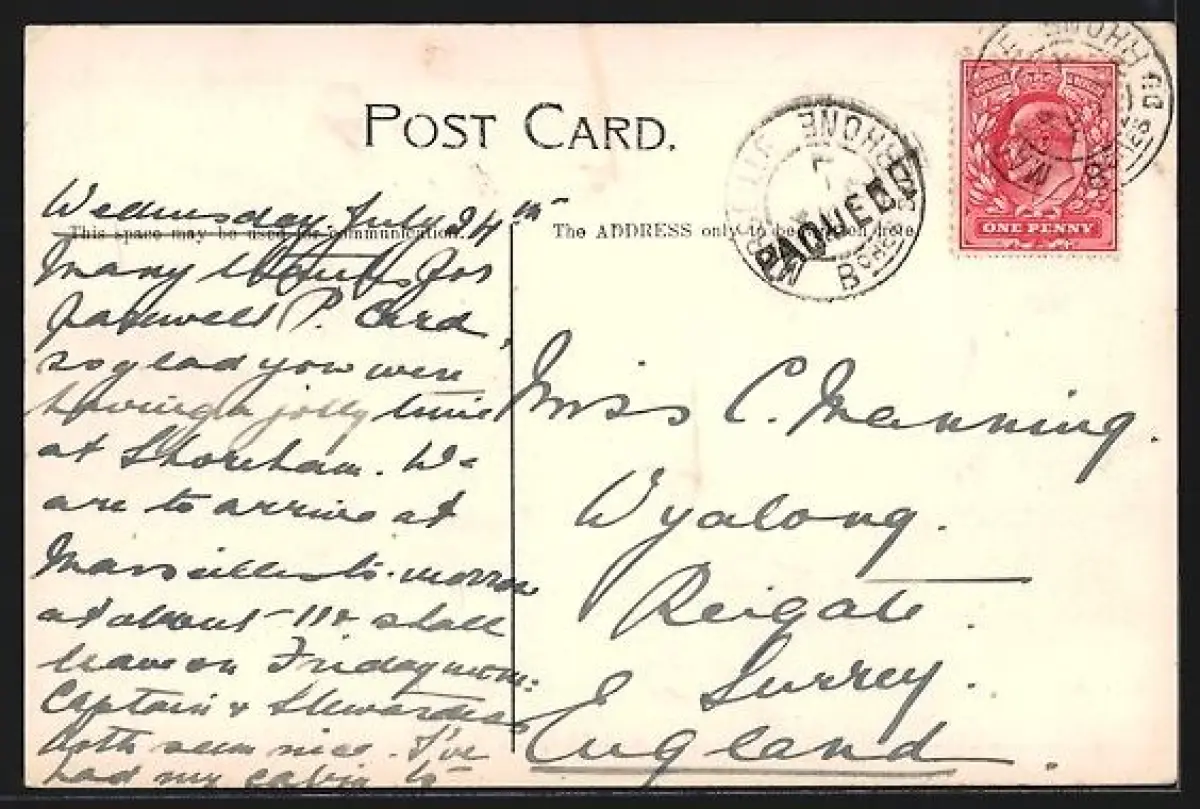 POST CARD.
This space may be used for communication.
The ADDRESS only to be written here.
Wednesday July 24th
Many thanks for
farewell P. Card,
so glad you were
having a jolly time
at Shoreham. We
are to arrive at
Marseilles to-morrow
at about 11 & shall
leave on Friday morn:
Captain & Stewardess
both seem nice. I've
had my cabin to
Miss C. Manning.
Wyalong.
Reigate.
Surrey.
England.
PAQUEBOT
RHONE
ONE PENNY
RHONE